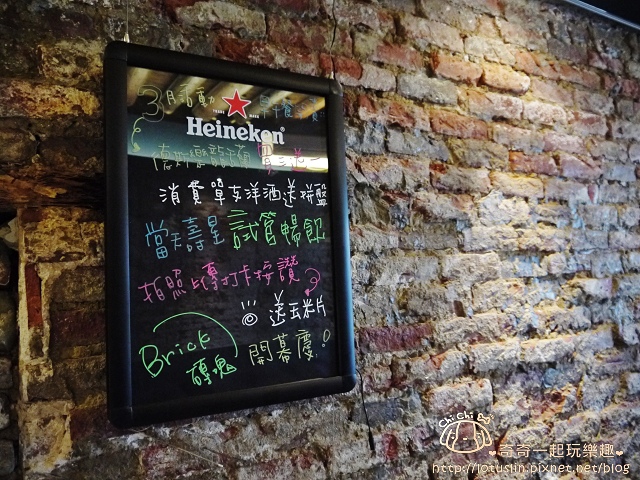 3月活動
Heineken
消費單支洋酒送拼盤
當天壽星試管暢飲
拍照上傳打卡按讚
送玉米片
Brick 磚塊 開幕慶!
Chi Chi
奇奇一起玩樂趣
http://lotuslin.pixnet.net/blog